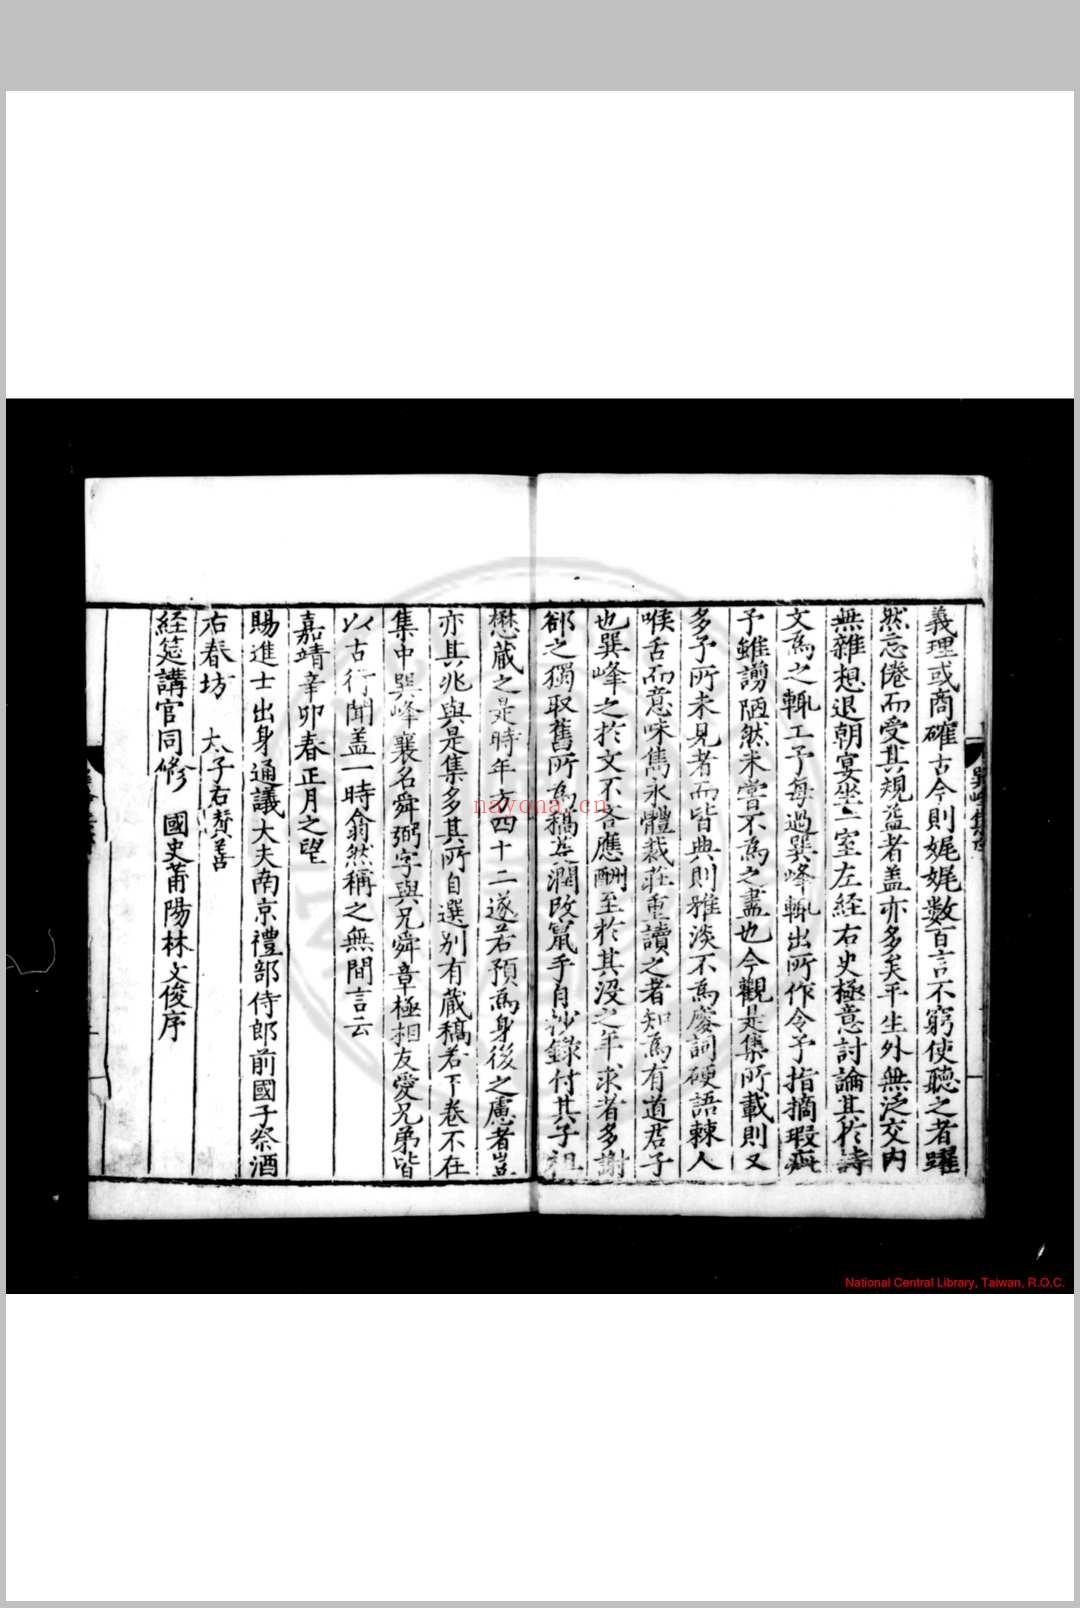 義理或商確古今則娓娓數百言不窮使聽之者躍
然忘倦而受其規益者盖亦多矣平生外無泛交内
無雜想退朝宴坐一室左經右史極意討論其於詩
文爲之輒工予每過巽峰輒出所作令予指摘瑕疵
予雖謭陋然未嘗不爲之盡也今觀是集所載則又
多予所未見者而皆典則雅淡不爲廋詞硬語棘人
喉舌而意味雋永體裁莊重讀之者知爲有道君子
也巽峰之於文不吝應酬至於其没之年求者多謝
郤之獨取舊所爲稿芟潤改竄手自抄錄付其子祖
懋藏之是時年方四十二遂若預爲身後之慮者豈
亦其兆與是集多其所自選别有藏稿若干卷不在
集中巽峰襄名舜弼字與兄舜章極相友愛兄弟皆
以古行聞盖一時翕然稱之無間言云
嘉靖辛卯春正月之望
賜進士出身通議大夫南京禮部侍郎前國子祭酒
右春坊 太子右贊善
経筵講官同修 國史莆陽林文俊序
巽峰集序
nayona.cn
National Central Library, Taiwan, R.O.C.